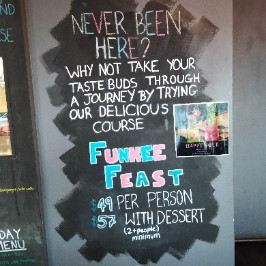 NEVER BEEN
HERE?
WHY NOT TAKE YOUR
TASTE BUDS THROUGH
A JOURNEY BY TRYING
OUR DELICIOUS
COURSE
FUNKEE
FEAST
$49 PER PERSON
$57 WITH DESSERT
(2+people)
minimum
DAY
MENU